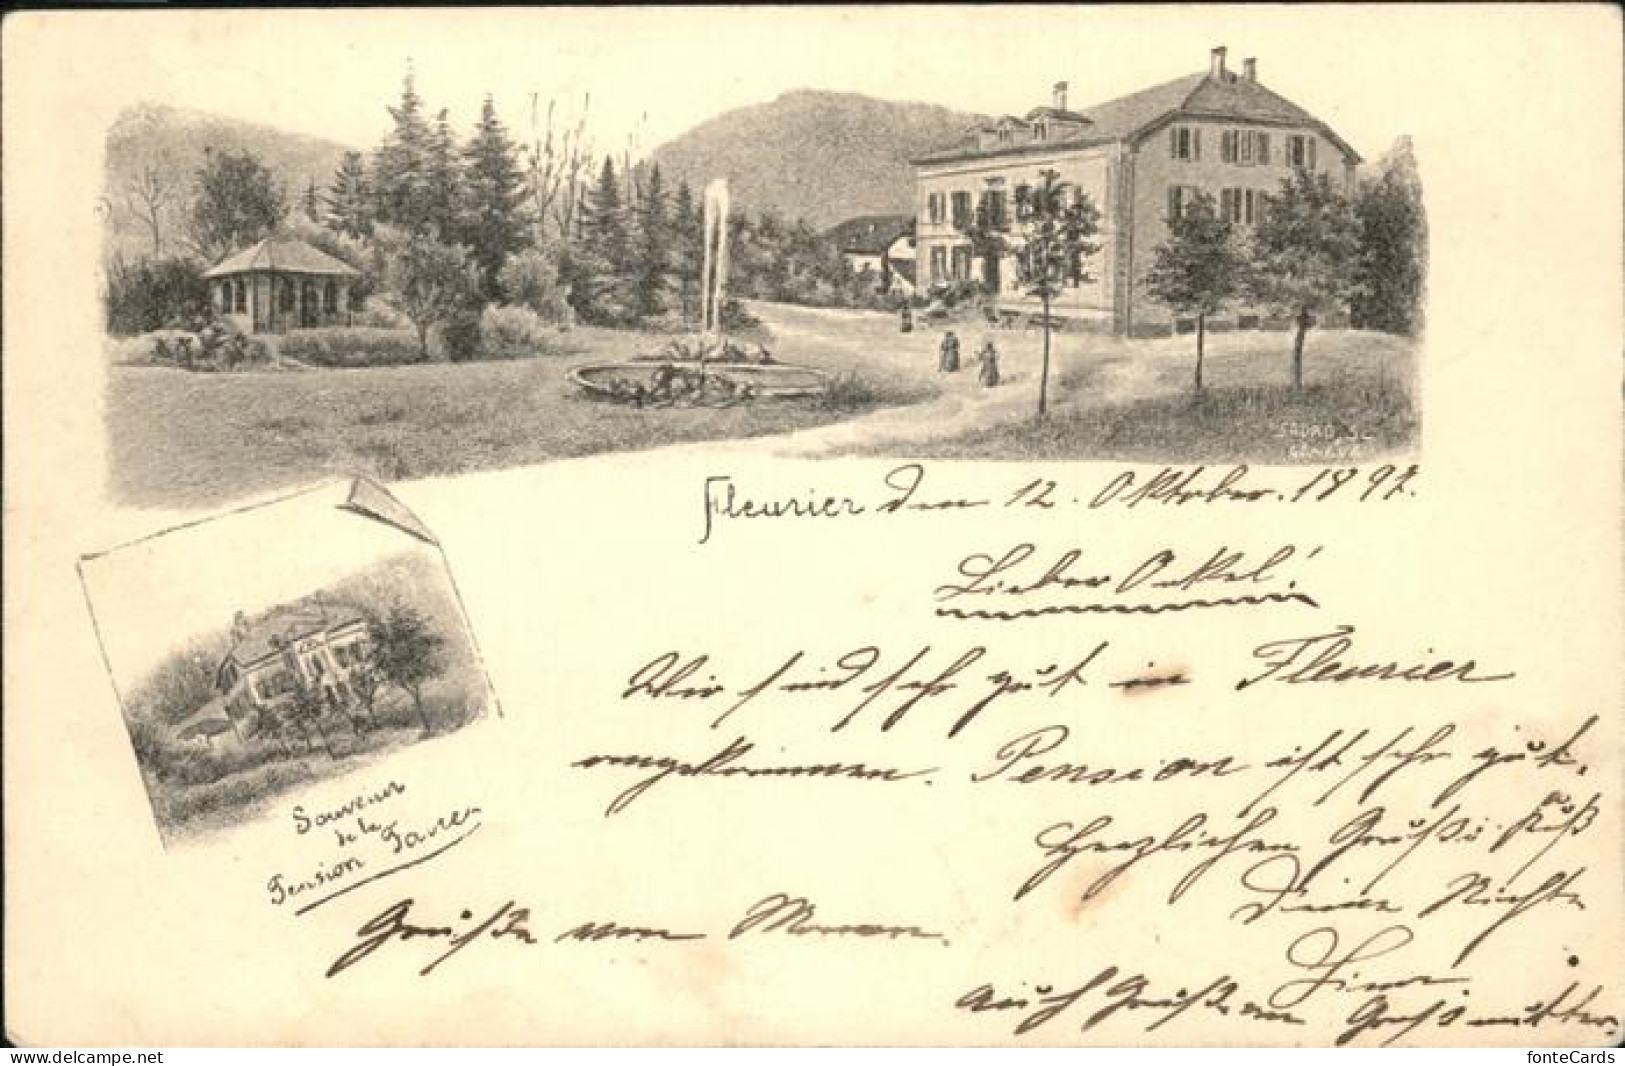 Fleurier den 12. Oktober. 1892.
Lieber Onkel!
Wir sind sehr gut in Fleurier
angekommen. Pension ist sehr gut.
Herzlichen Gruß u. Kuß
Deine Nichte
Souvenir
de la
Pension
Grüße von
auch Grüße an Großmutter.
fonteCards
delcampe.net/KingNRW